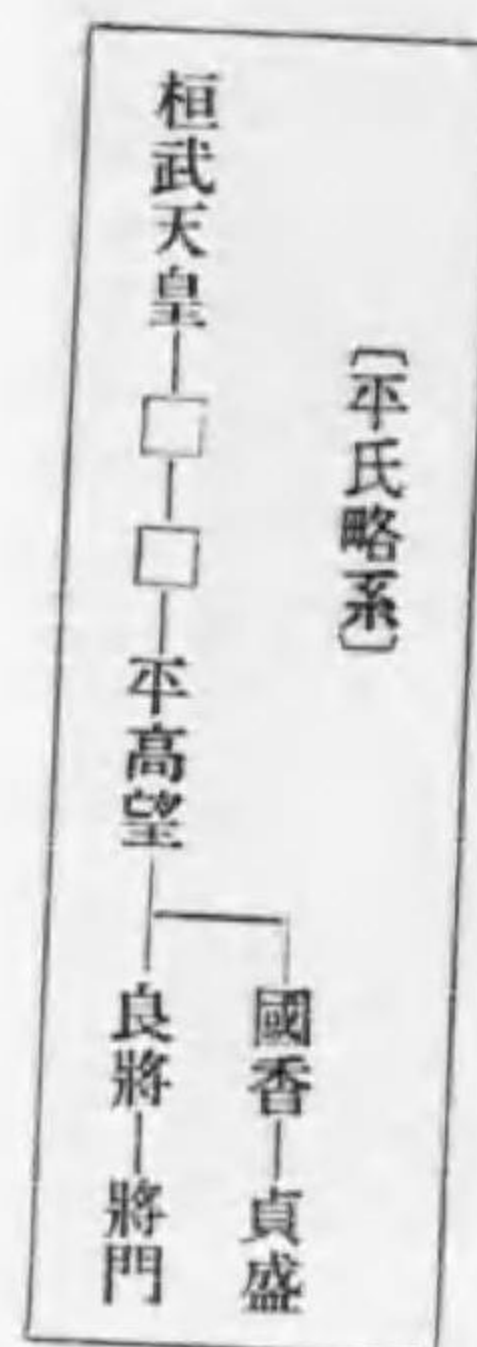 〔平氏略系〕
桓武天皇―□―□―平高望
國香―貞盛
良將―將門